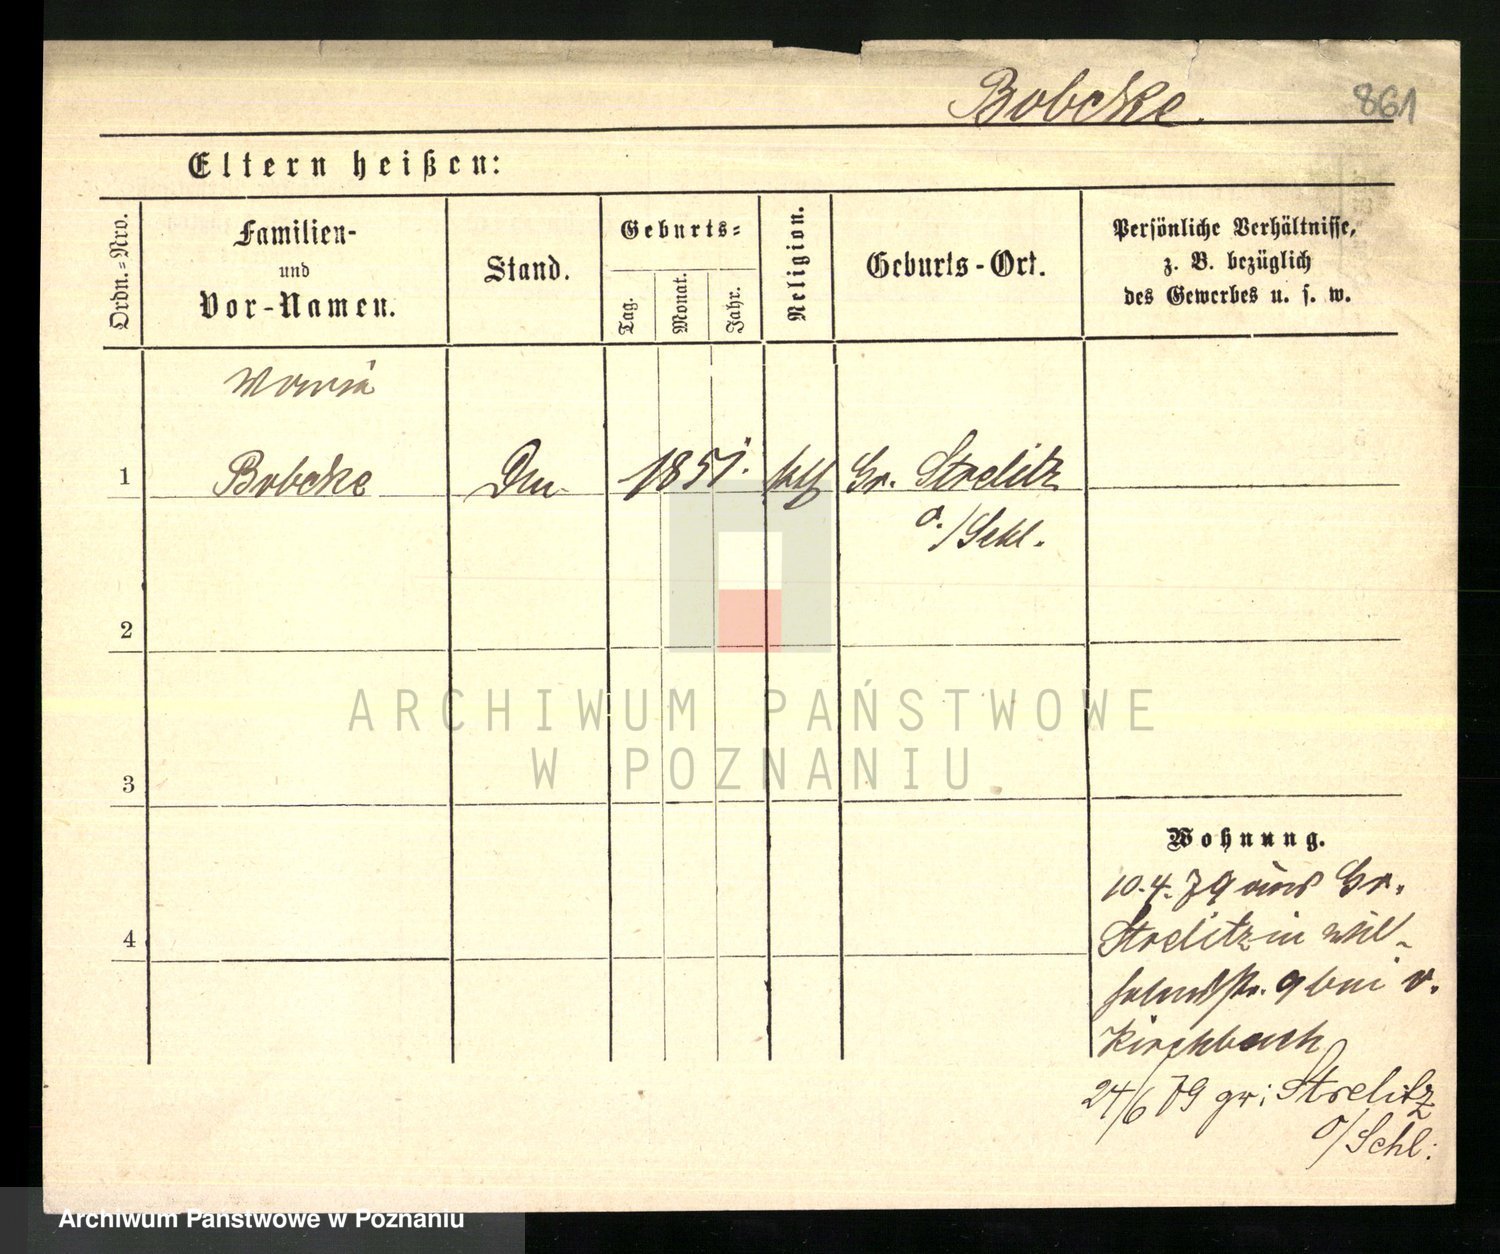 Bobcke.
861
Eltern heißen:
Ordn.=Nro.
Familien-
und
Vor-Namen.
Stand.
Geburts=
Tag.
Monat.
Jahr.
Religion.
Geburts-Ort.
Persönliche Verhältnisse,
z. B. bezüglich
des Gewerbes u. s. w.
Maria
1 Bobcke 1851. kath Gr. Strelitz
o./Schl.
2
3
4
Wohnung.
10.4.79 aus Gr.
Strelitz in Wil-
helmsstr. 9 bei v.
Kirchbach
24/6 79 gr: Strelitz
o/Schl:
ARCHIWUM PAŃSTWOWE
W POZNANIU
Archiwum Państwowe w Poznaniu